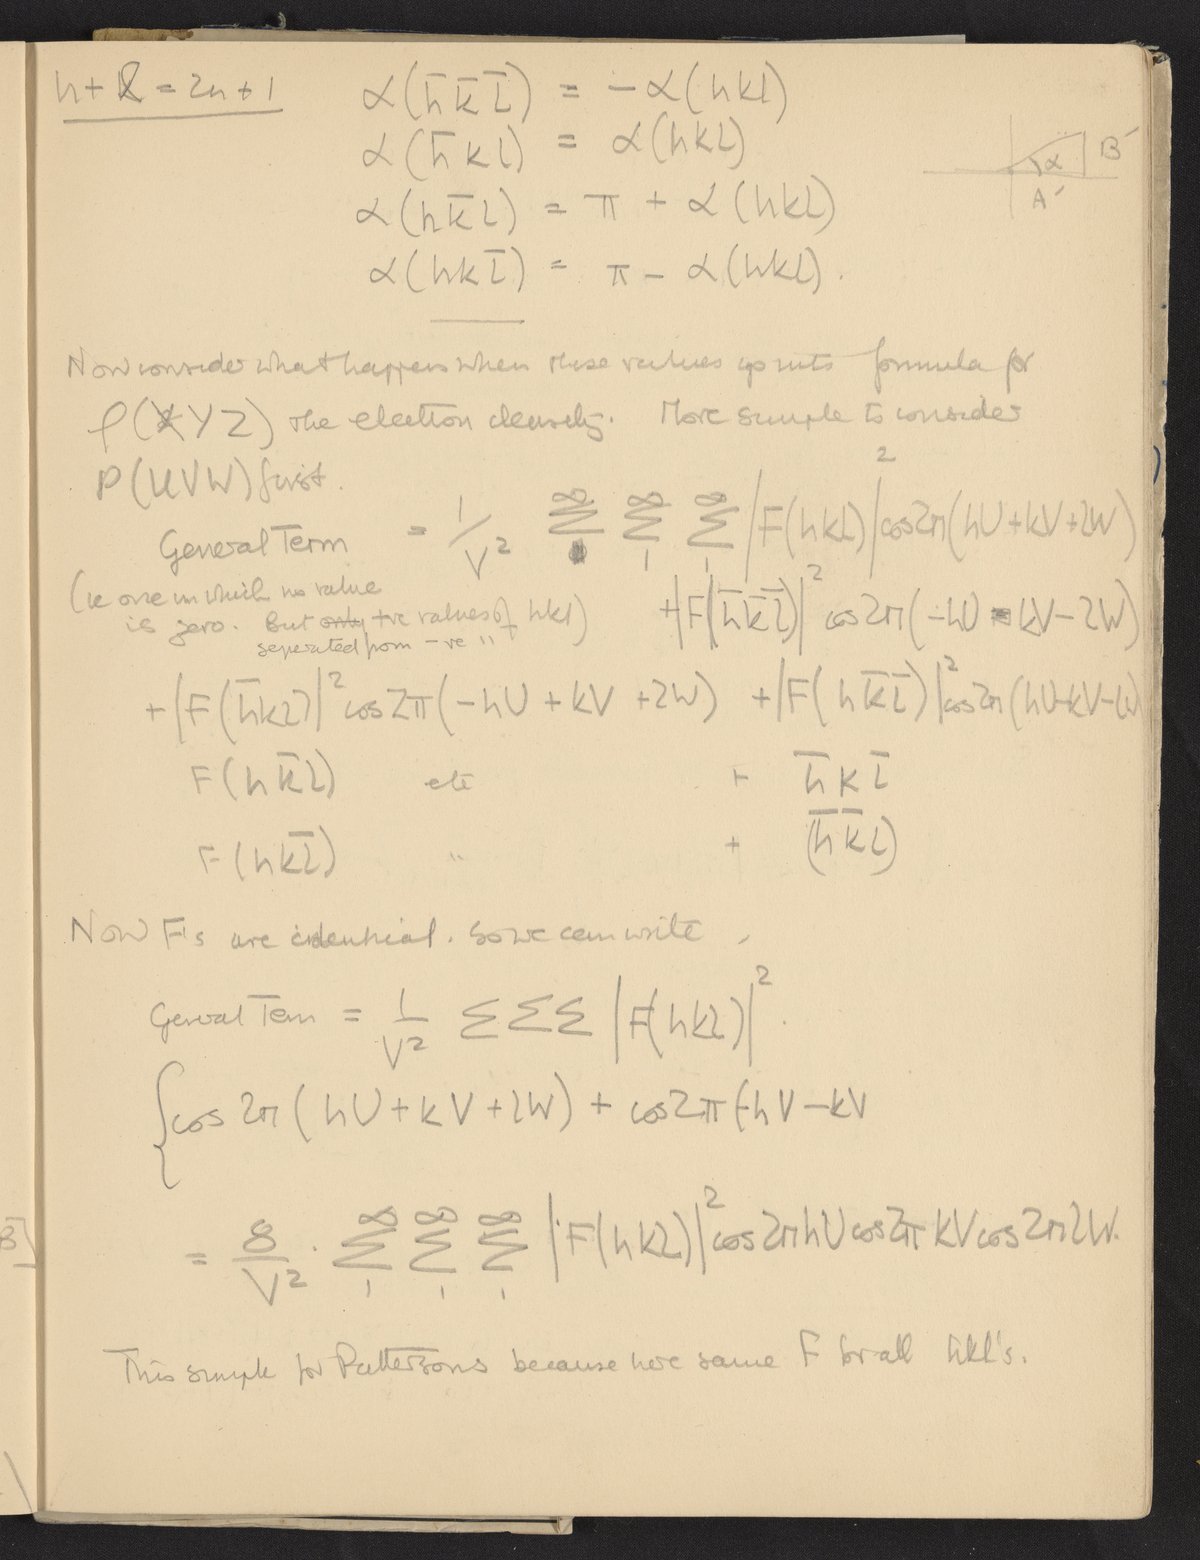 h+k = 2n+1
α(h̄ k̄ l̄) = -α(hkl)
α(h̄ k l) = α(hkl)
B′
α
A′
α(h k̄ l) = π + α(hkl)
α(h k l̄) = π - α(hkl).
Now consider what happens when these values go into formula for
ρ(XYZ) the electron density. More simple to consider
P(UVW) first.
General Term = 1/V² ∞Σ1 ∞Σ1 ∞Σ1 |F(hkl)|² cos2π(hU+kV+lW)
(ie one in which no value
is zero. But only +ve values of hkl)
seperated from -ve "
+|F(h̄ k̄ l̄)|² cos2π(-hU-kV-lW)
+|F(h̄kl)|² cos2π(-hU+kV+lW) +|F(h k̄ l̄)|² cos2π(hU-kV-lW)
F(h k̄ l) etc + h̄ k l̄
F(h k l̄) " + (h̄ k̄ l)
Now F's are identical. So we can write,
General Term = 1/V² ΣΣΣ |F(hkl)|².
{cos 2π(hU+kV+lW) + cos2π(-hV-kV
= 8/V². ∞Σ1 ∞Σ1 ∞Σ1 |F(hkl)|² cos2πhU cos2πkV cos2πlW.
This simple for Pattersons because here same F for all hkl's.
B